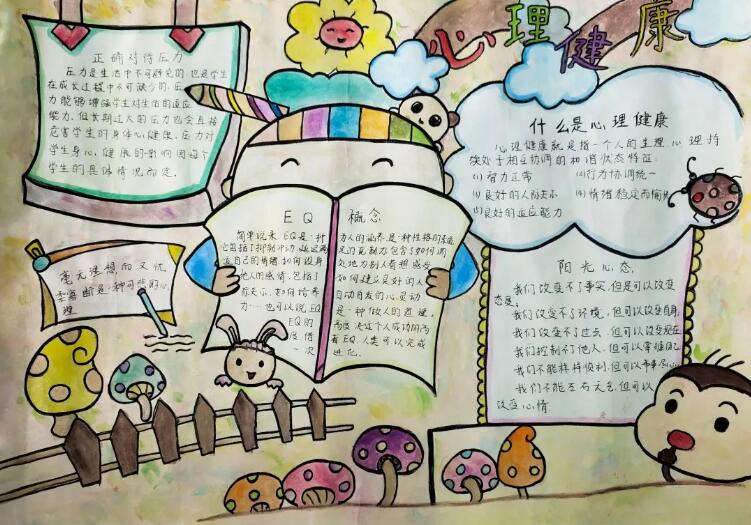 心理健康
正确对待压力
压力是生活中不可避免的,也是学生
在成长过程中不可缺少的.压
力能够增强学生对生活的适应
能力.但长期过大的压力也会直接
危害学生的身体心健康.压力对
学生身心健康的影响因每个
学生的具体情况而定.
毫无理想而又忧
是一种可 的心
理
EQ 概念
简单说来EQ是一种
自己的情绪如何设身
他人的感情.包括了
力……也可以说EQ
EQ的
一次
力人的涵养,是一种性格的素质.
处地为别人着想感受
如何建立良好的人
自动自发的心灵动
是一种做人的道理,
EQ.人类可以完成
进化.
什么是心理健康
心理健康就是指一个人的生理心理持
续处于相互协调的和谐状态特征:
(1)智力正常 (2)行为协调统一
(3)良好的人际关系 (4)情绪稳定而愉快
(5)良好的适应能力
阳光心态
我们改变不了事实,但是可以改变
态度,
我们改变不了环境,但可以改变自身,
我们改变不了过去,但可以改变现在
我们控制不了他人,但可以掌握自己
我们不能样样顺利,但可以事事尽心
我们不能左右天气,但可以
改变心情